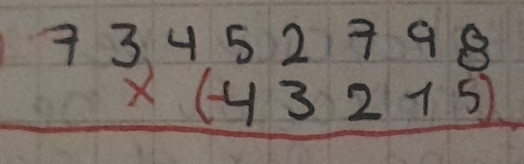 7 3 4 5 2 7 9 8
x (-4 3 2 1 5)